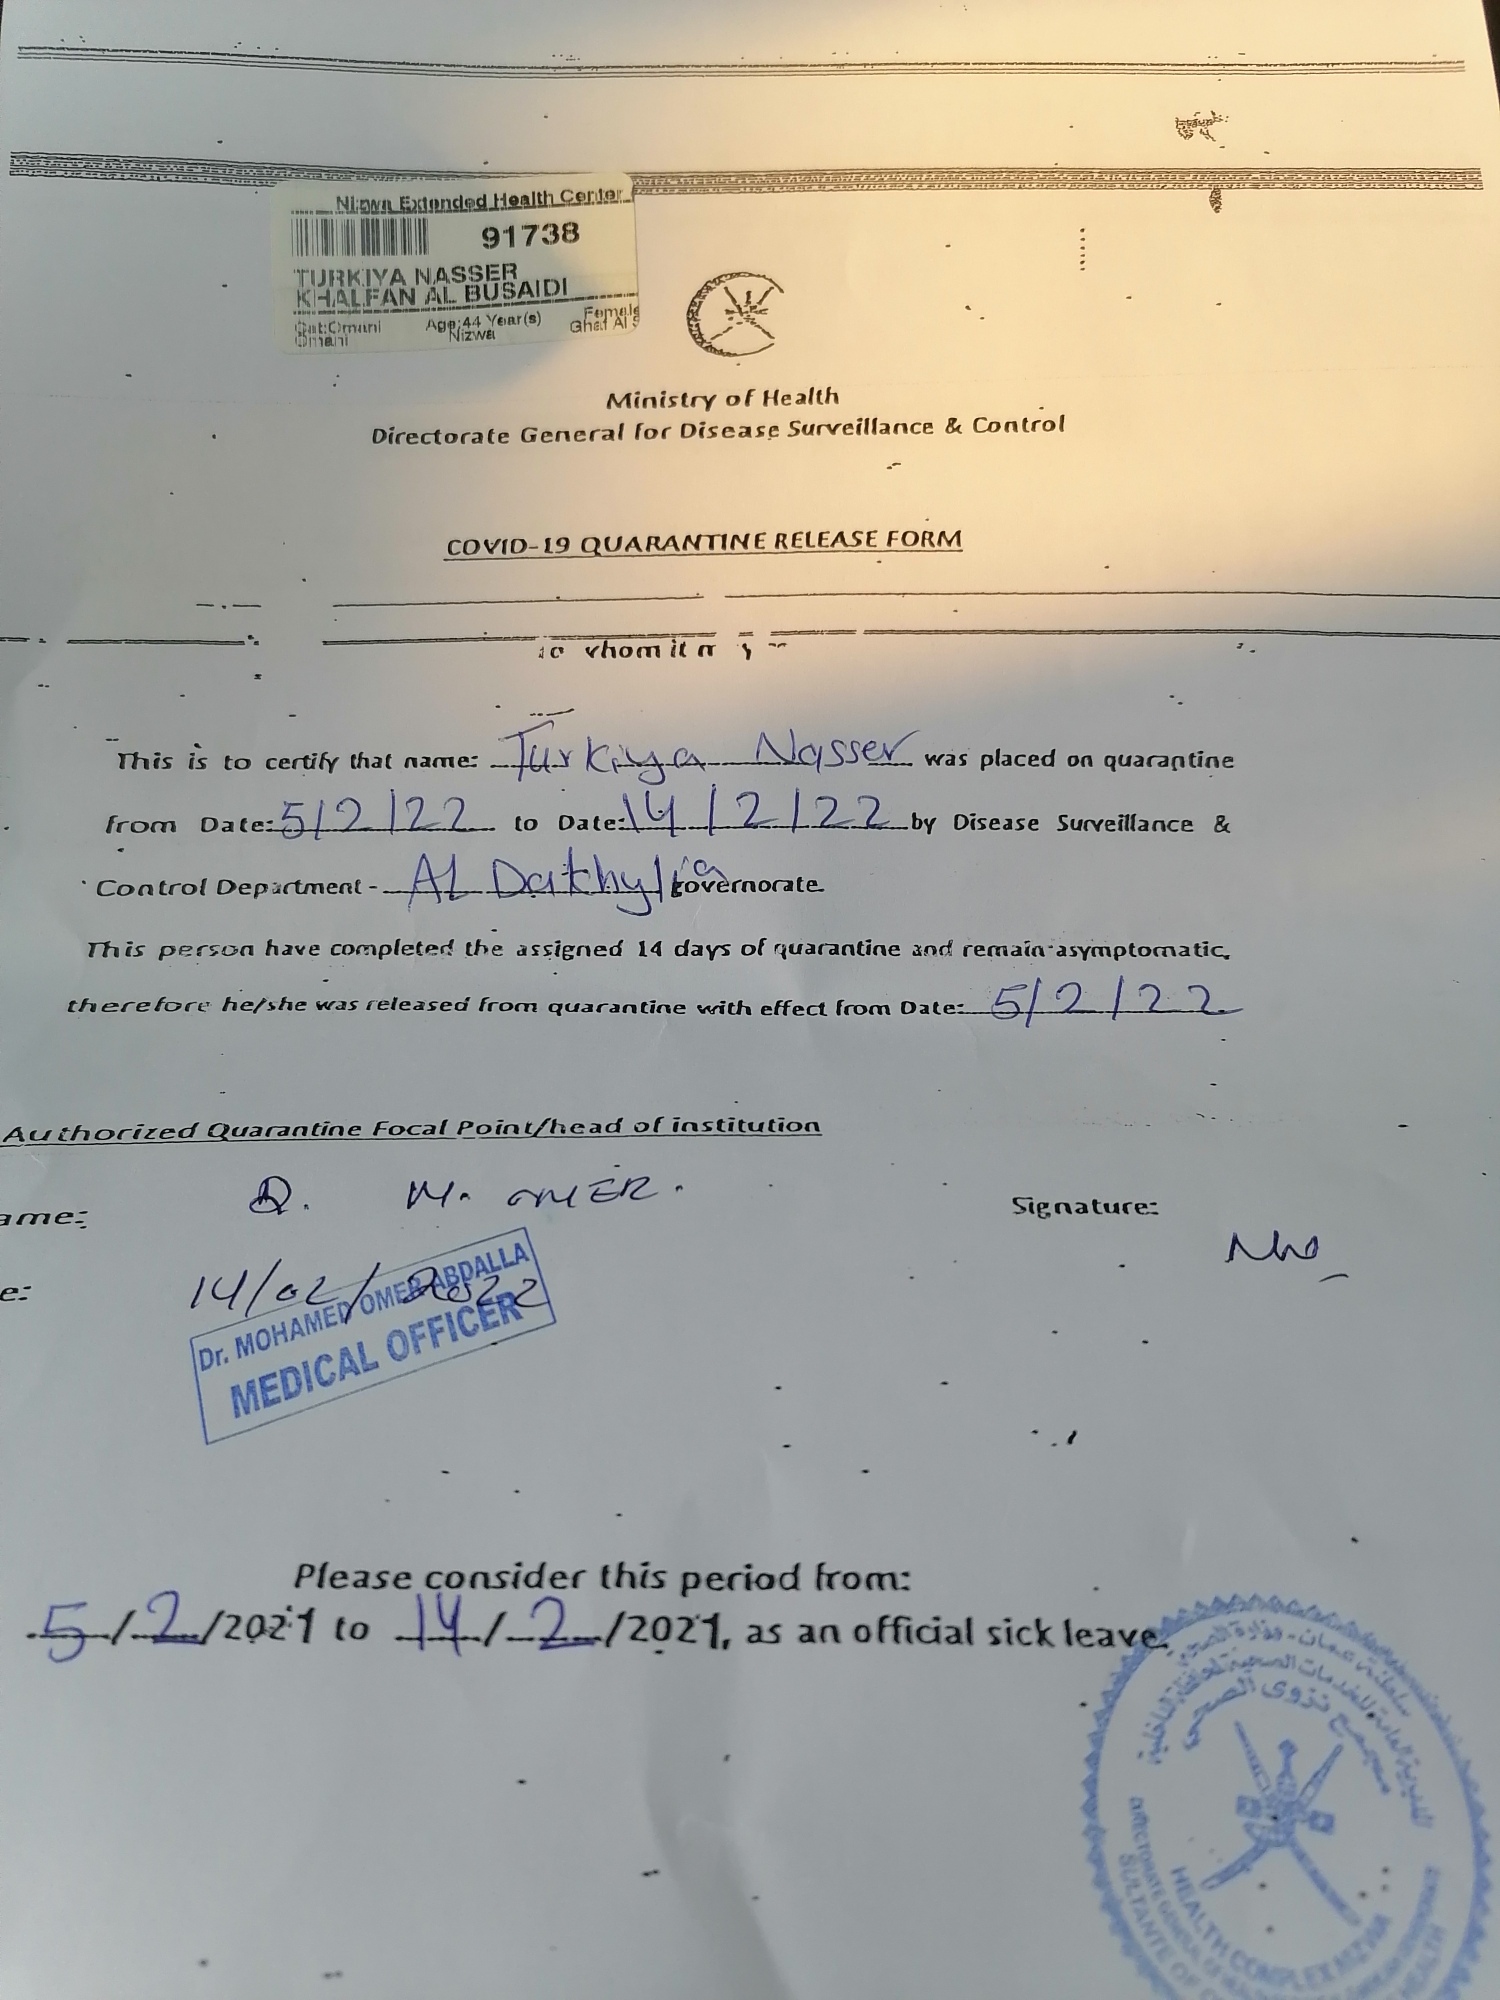 Nizwa Extended Health Center
91738
TURKIYA NASSER
KHALFAN AL BUSAIDI
Omani Age:44 Year(s) Female
Omani Nizwa Ghaf Al S
Ministry of Health
Directorate General for Disease Surveillance & Control
COVID-19 QUARANTINE RELEASE FORM
whom it
This is to certify that name: Turkiya Nasser was placed on quarantine
from Date: 5/2/22 to Date: 14/2/22 by Disease Surveillance &
Control Department - AL Dakhylia governorate.
This person have completed the assigned 14 days of quarantine and remain asymptomatic,
therefore he/she was released from quarantine with effect from Date: 5/2/22
Authorized Quarantine Focal Point/head of institution
ame: M. OMER. Signature:
e: 14/02/2022
Dr. MOHAMED OMER ABDALLA
MEDICAL OFFICER
Please consider this period from:
5/2/2021 to 14/2/2021, as an official sick leave.
سلطنة عمان - وزارة الصحة
المديرية العامة للخدمات الصحية لمحافظة الداخلية
مجمع نزوى الصحي
HEALTH COMPLEX NIZWA
DIRECTORATE GENERAL OF
SULTANATE OF HEALTH